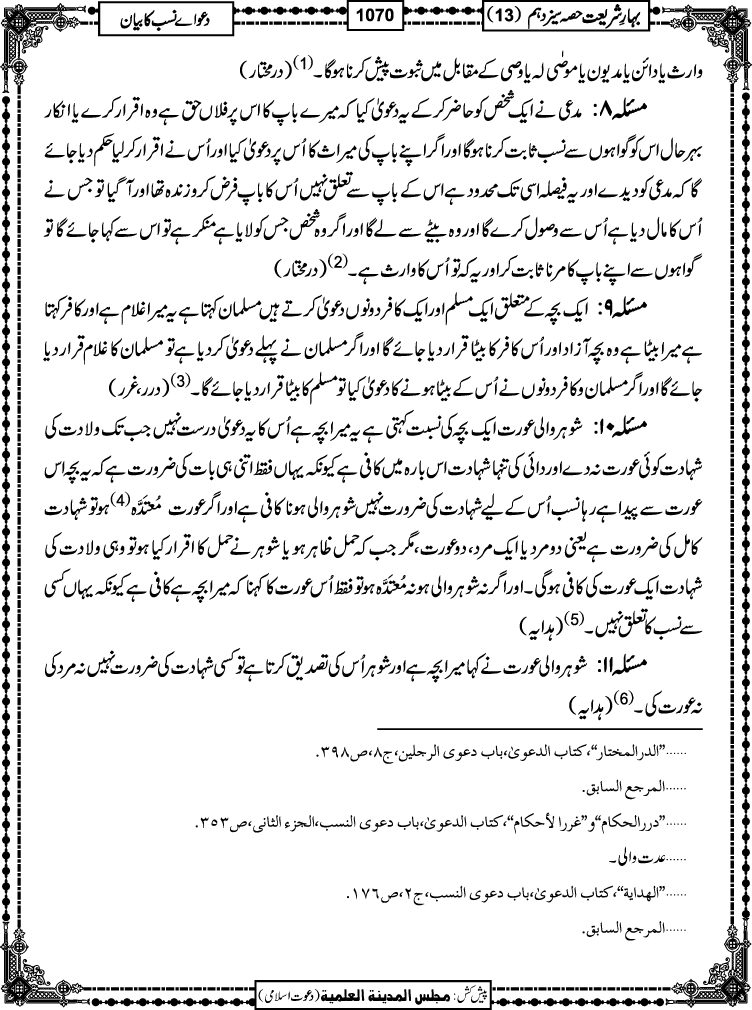 بہارِشریعت حصہ سیزدہم (13)
1070
دعواے نسب کا بیان
وارث یا دائن یا مدیون یا موصٰی لہ یا وصی کے مقابل میں ثبوت پیش کرنا ہوگا۔(1) (درمختار)
مسئلہ ۸: مدعی نے ایک شخص کو حاضر کرکے یہ دعویٰ کیا کہ میرے باپ کا اس پر فلاں حق ہے وہ اقرار کرے یا انکار
بہرحال اس کو گواہوں سے نسب ثابت کرنا ہوگا اور اگر اپنے باپ کی میراث کا اُس پر دعویٰ کیا اور اُس نے اقرار کرلیا حکم دیا جائے
گا کہ مدعی کو دیدے اور یہ فیصلہ اسی تک محدود ہے اس کے باپ سے تعلق نہیں اُس کا باپ فرض کرو زندہ تھا اور آ گیا تو جس نے
اُس کا مال دیا ہے اُس سے وصول کرے گا اور وہ بیٹے سے لے گا اور اگر وہ شخص جس کو لایا ہے منکر ہے تو اس سے کہا جائے گا تو
گواہوں سے اپنے باپ کا مرنا ثابت کر اور یہ کہ تو اُس کا وارث ہے۔(2) (درمختار)
مسئلہ ۹: ایک بچہ کے متعلق ایک مسلم اور ایک کافر دونوں دعویٰ کرتے ہیں مسلمان کہتا ہے یہ میرا غلام ہے اور کافر کہتا
ہے میرا بیٹا ہے وہ بچہ آزاد اور اُس کافر کا بیٹا قرار دیا جائے گا اور اگر مسلمان نے پہلے دعویٰ کردیا ہے تو مسلمان کا غلام قرار دیا
جائے گا اور اگر مسلمان و کافر دونوں نے اُس کے بیٹا ہونے کا دعویٰ کیا تو مسلم کا بیٹا قرار دیا جائے گا۔(3) (درر، غرر)
مسئلہ ۱۰: شوہر والی عورت ایک بچہ کی نسبت کہتی ہے یہ میرا بچہ ہے اُس کا یہ دعویٰ درست نہیں جب تک ولادت کی
شہادت کوئی عورت نہ دے اور دائی کی تنہا شہادت اس بارہ میں کافی ہے کیونکہ یہاں فقط اتنی ہی بات کی ضرورت ہے کہ یہ بچہ اس
عورت سے پیدا ہے رہا نسب اُس کے لیے شہادت کی ضرورت نہیں شوہر والی ہونا کافی ہے اور اگر عورت مُعتَدَّہ(4) ہو تو شہادت
کامل کی ضرورت ہے یعنی دو مرد یا ایک مرد، دو عورت، مگر جب کہ حمل ظاہر ہو یا شوہر نے حمل کا اقرار کیا ہو تو وہی ولادت کی
شہادت ایک عورت کی کافی ہوگی۔ اور اگر نہ شوہر والی ہو نہ مُعتَدَّہ ہو تو فقط اُس عورت کا کہنا کہ میرا بچہ ہے کافی ہے کیونکہ یہاں کسی
سے نسب کا تعلق نہیں۔(5) (ہدایہ)
مسئلہ ۱۱: شوہر والی عورت نے کہا میرا بچہ ہے اور شوہر اُس کی تصدیق کرتا ہے تو کسی شہادت کی ضرورت نہیں نہ مرد کی
نہ عورت کی۔(6) (ہدایہ)
......”الدرالمختار“، کتاب الدعویٰ، باب دعوی الرجلین، ج۸، ص۳۹۸.
......المرجع السابق.
......”دررالحکام“ و”غررالأحکام“، کتاب الدعویٰ، باب دعوی النسب، الجزء الثانی، ص۳۵۳.
......عدت والی۔
......”الھدایة“، کتاب الدعویٰ، باب دعوی النسب، ج۲، ص۱۷۶.
......المرجع السابق.
پیش کش: مجلس المدینة العلمیة (دعوت اسلامی)